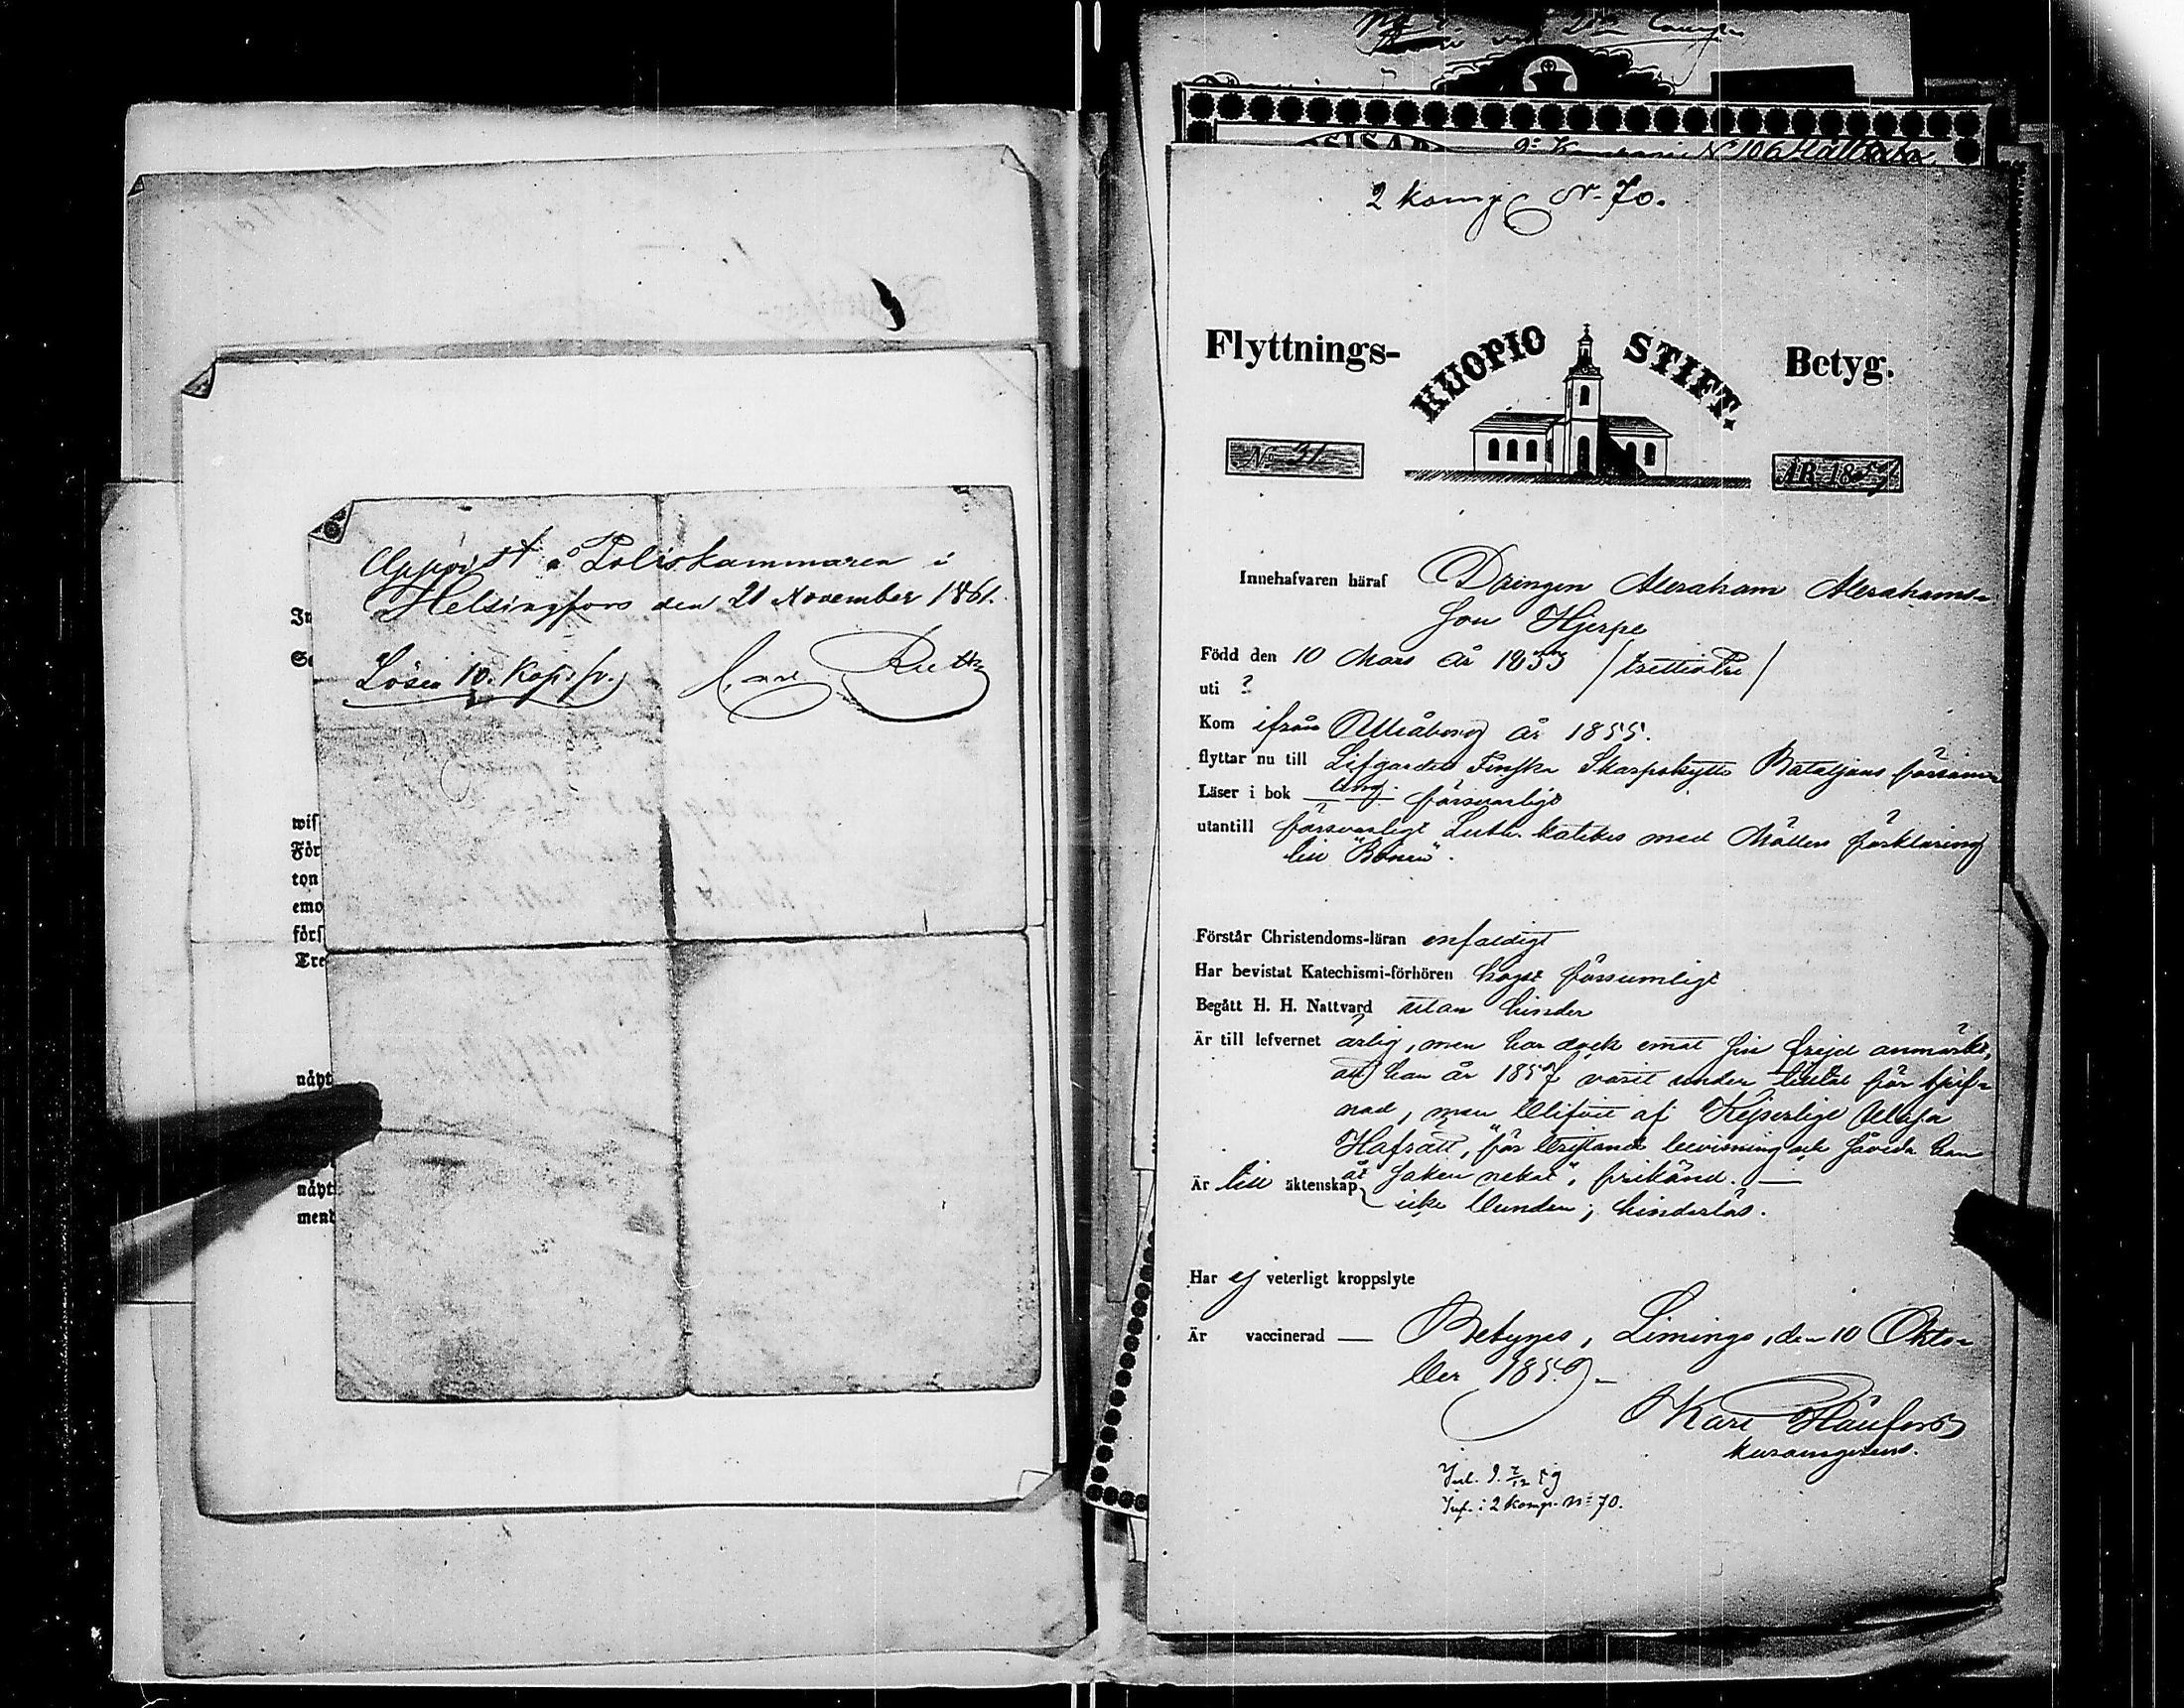 Uppvist å Poliskammaren i
Helsingfors den 21 November 1861.
Lösen 10. Kop. sr.
Carl
In
wis
För
ton
emo
förs
Tre
nåpt
nåpt
mend
2 Komp N. 70.
Flyttnings- KUOPIO STIFT. Betyg.
No 31 ÅR 1859
Innehafvaren häraf Drängen Abraham Abrahams-
son Hjerpe
Född den 10 Mars År 1833 /trettiotre/
uti ?
Kom ifrån Uleåborg år 1855.
flyttar nu till Lifgardets Finska Skarpskytte Bataljons församl
Läser i bok försvarligt
utantill försvarligt Luth. katekes med Möllers förklaring
till "Bönen".
Förstår Christendoms-läran enfaldigt
Har bevistat Katechismi-förhören högst försumligt
Begått H. H. Nattvard utan hinder
Är till lefvernet ärlig, men har dock emot sin frejd anmärkt,
att han år 1857 varit under tilltal för tjuf-
nad, men blifvit af Kejserliga Wasa
Hofrätt, "för bristande bevisning och såvida han
åt saken nekat", frikänd. —
Är till äktenskap icke bunden; hinderlös.
Har ej veterligt kroppslyte
Är vaccinerad — Betyges, Limingo, den 10 Okto-
ber 1859. -
Karl
Inl. d. 7/12 59
Inf. i 2 Komp. No 70.